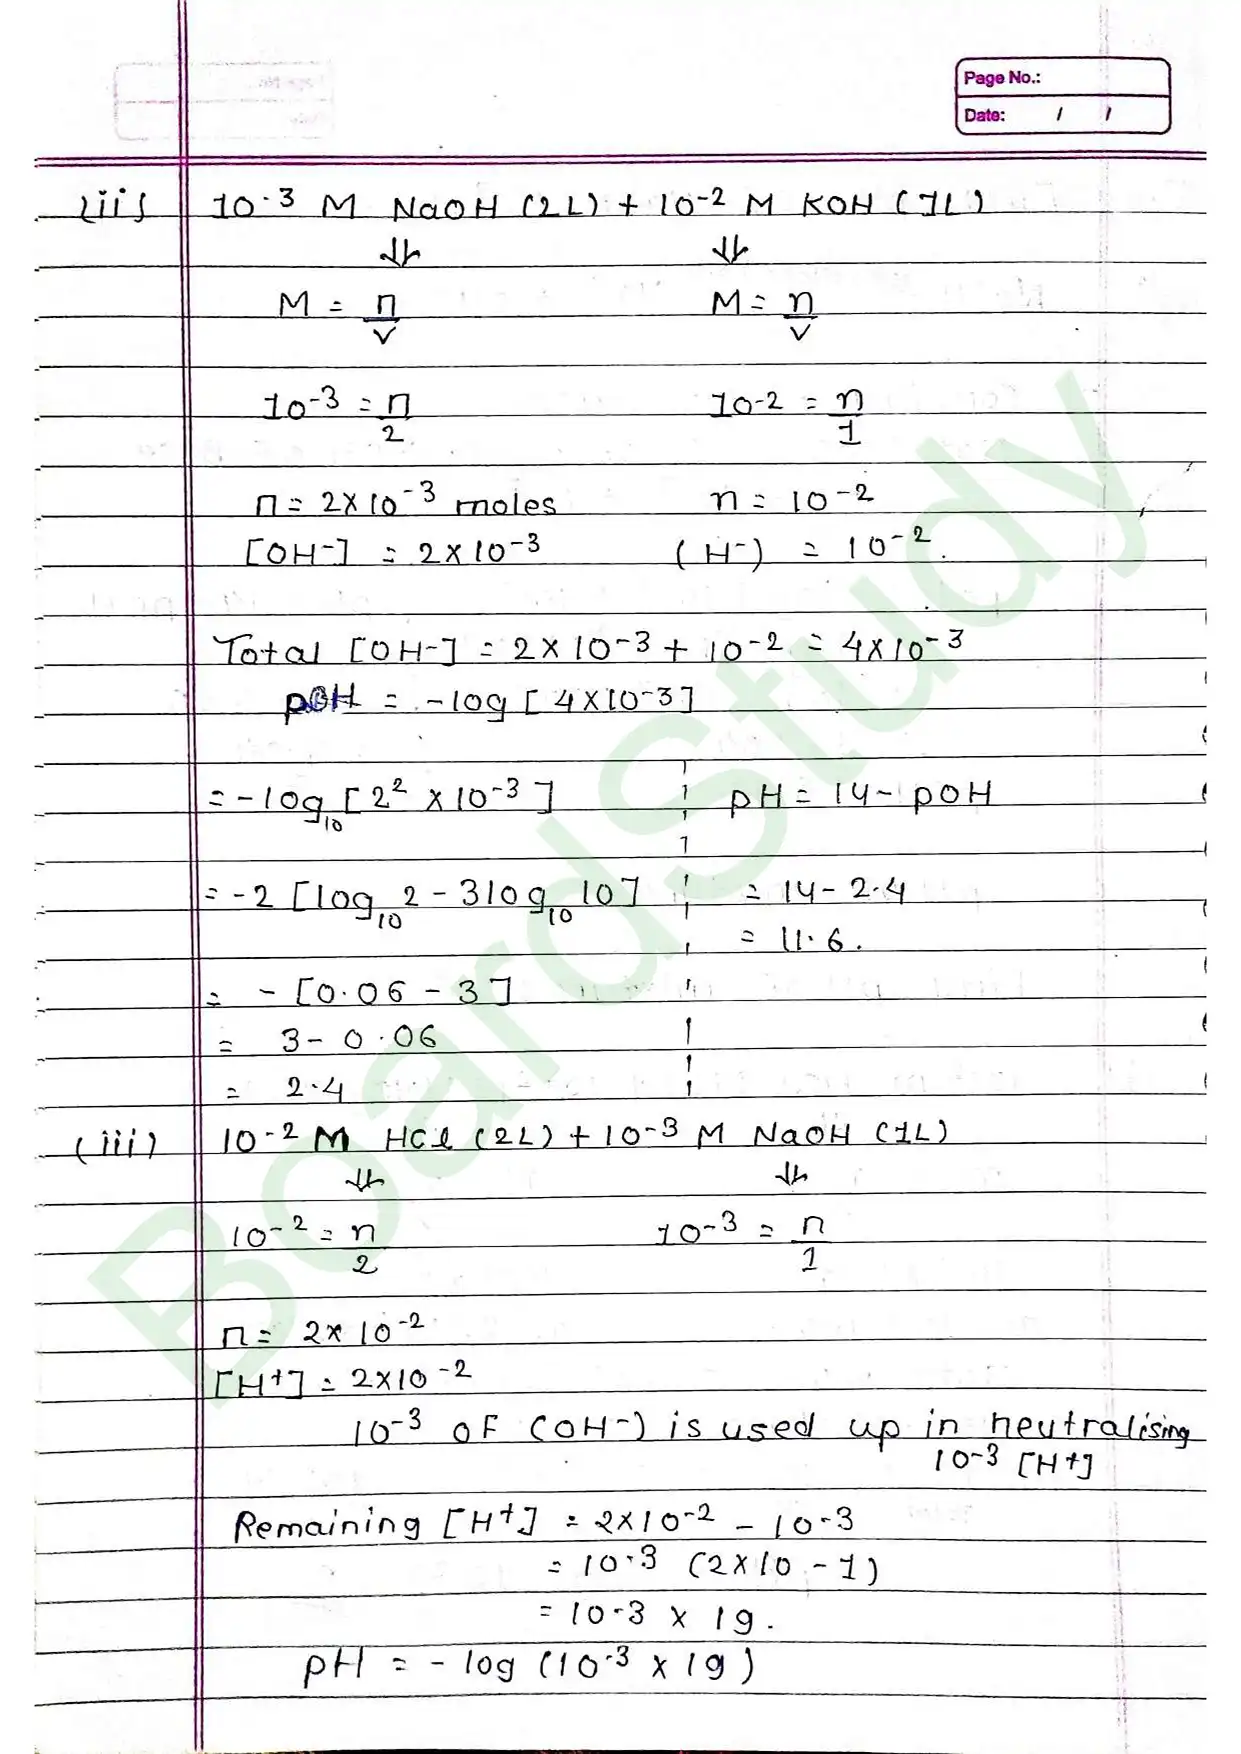 Page No.:
Date: / /
(ii) 10-3 M NaOH (2L) + 10-2 M KOH (1L)
⇓ ⇓
M = n/V M = n/V
10-3 = n/2 10-2 = n/1
n = 2×10-3 moles n = 10-2
[OH-] = 2×10-3 (H-) = 10-2.
Total [OH-] = 2×10-3 + 10-2 = 4×10-3
pOH = -log [4×10-3]
= -log10 [2² ×10-3] pH = 14- pOH
= -2 [log10 2 - 3log10 10] = 14- 2.4
= 11.6.
= - [0.06 - 3]
= 3- 0.06
= 2.4
(iii) 10-2 M HCl (2L) + 10-3 M NaOH (1L)
⇓ ⇓
10-2 = n/2 10-3 = n/1
n = 2× 10-2
[H+] = 2×10-2
10-3 OF (OH-) is used up in neutralising
10-3 [H+]
Remaining [H+] = 2×10-2 - 10-3
= 10-3 (2×10 - 1)
= 10-3 × 19.
pH = - log (10-3 × 19)
BoardStudy